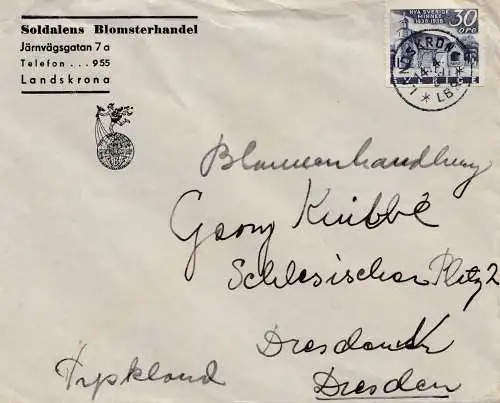 Soldalens Blomsterhandel
Järnvägsgatan 7 a
Telefon . . . 955
Landskrona
NYA SVERIGE
MINNET
1638-1938
30
ÖRE
LANDSKRONA
LBR
Blumenhandlung
Georg Knibbe
Schlesischer Platz 2
Dresden
Dresden
Tyskland